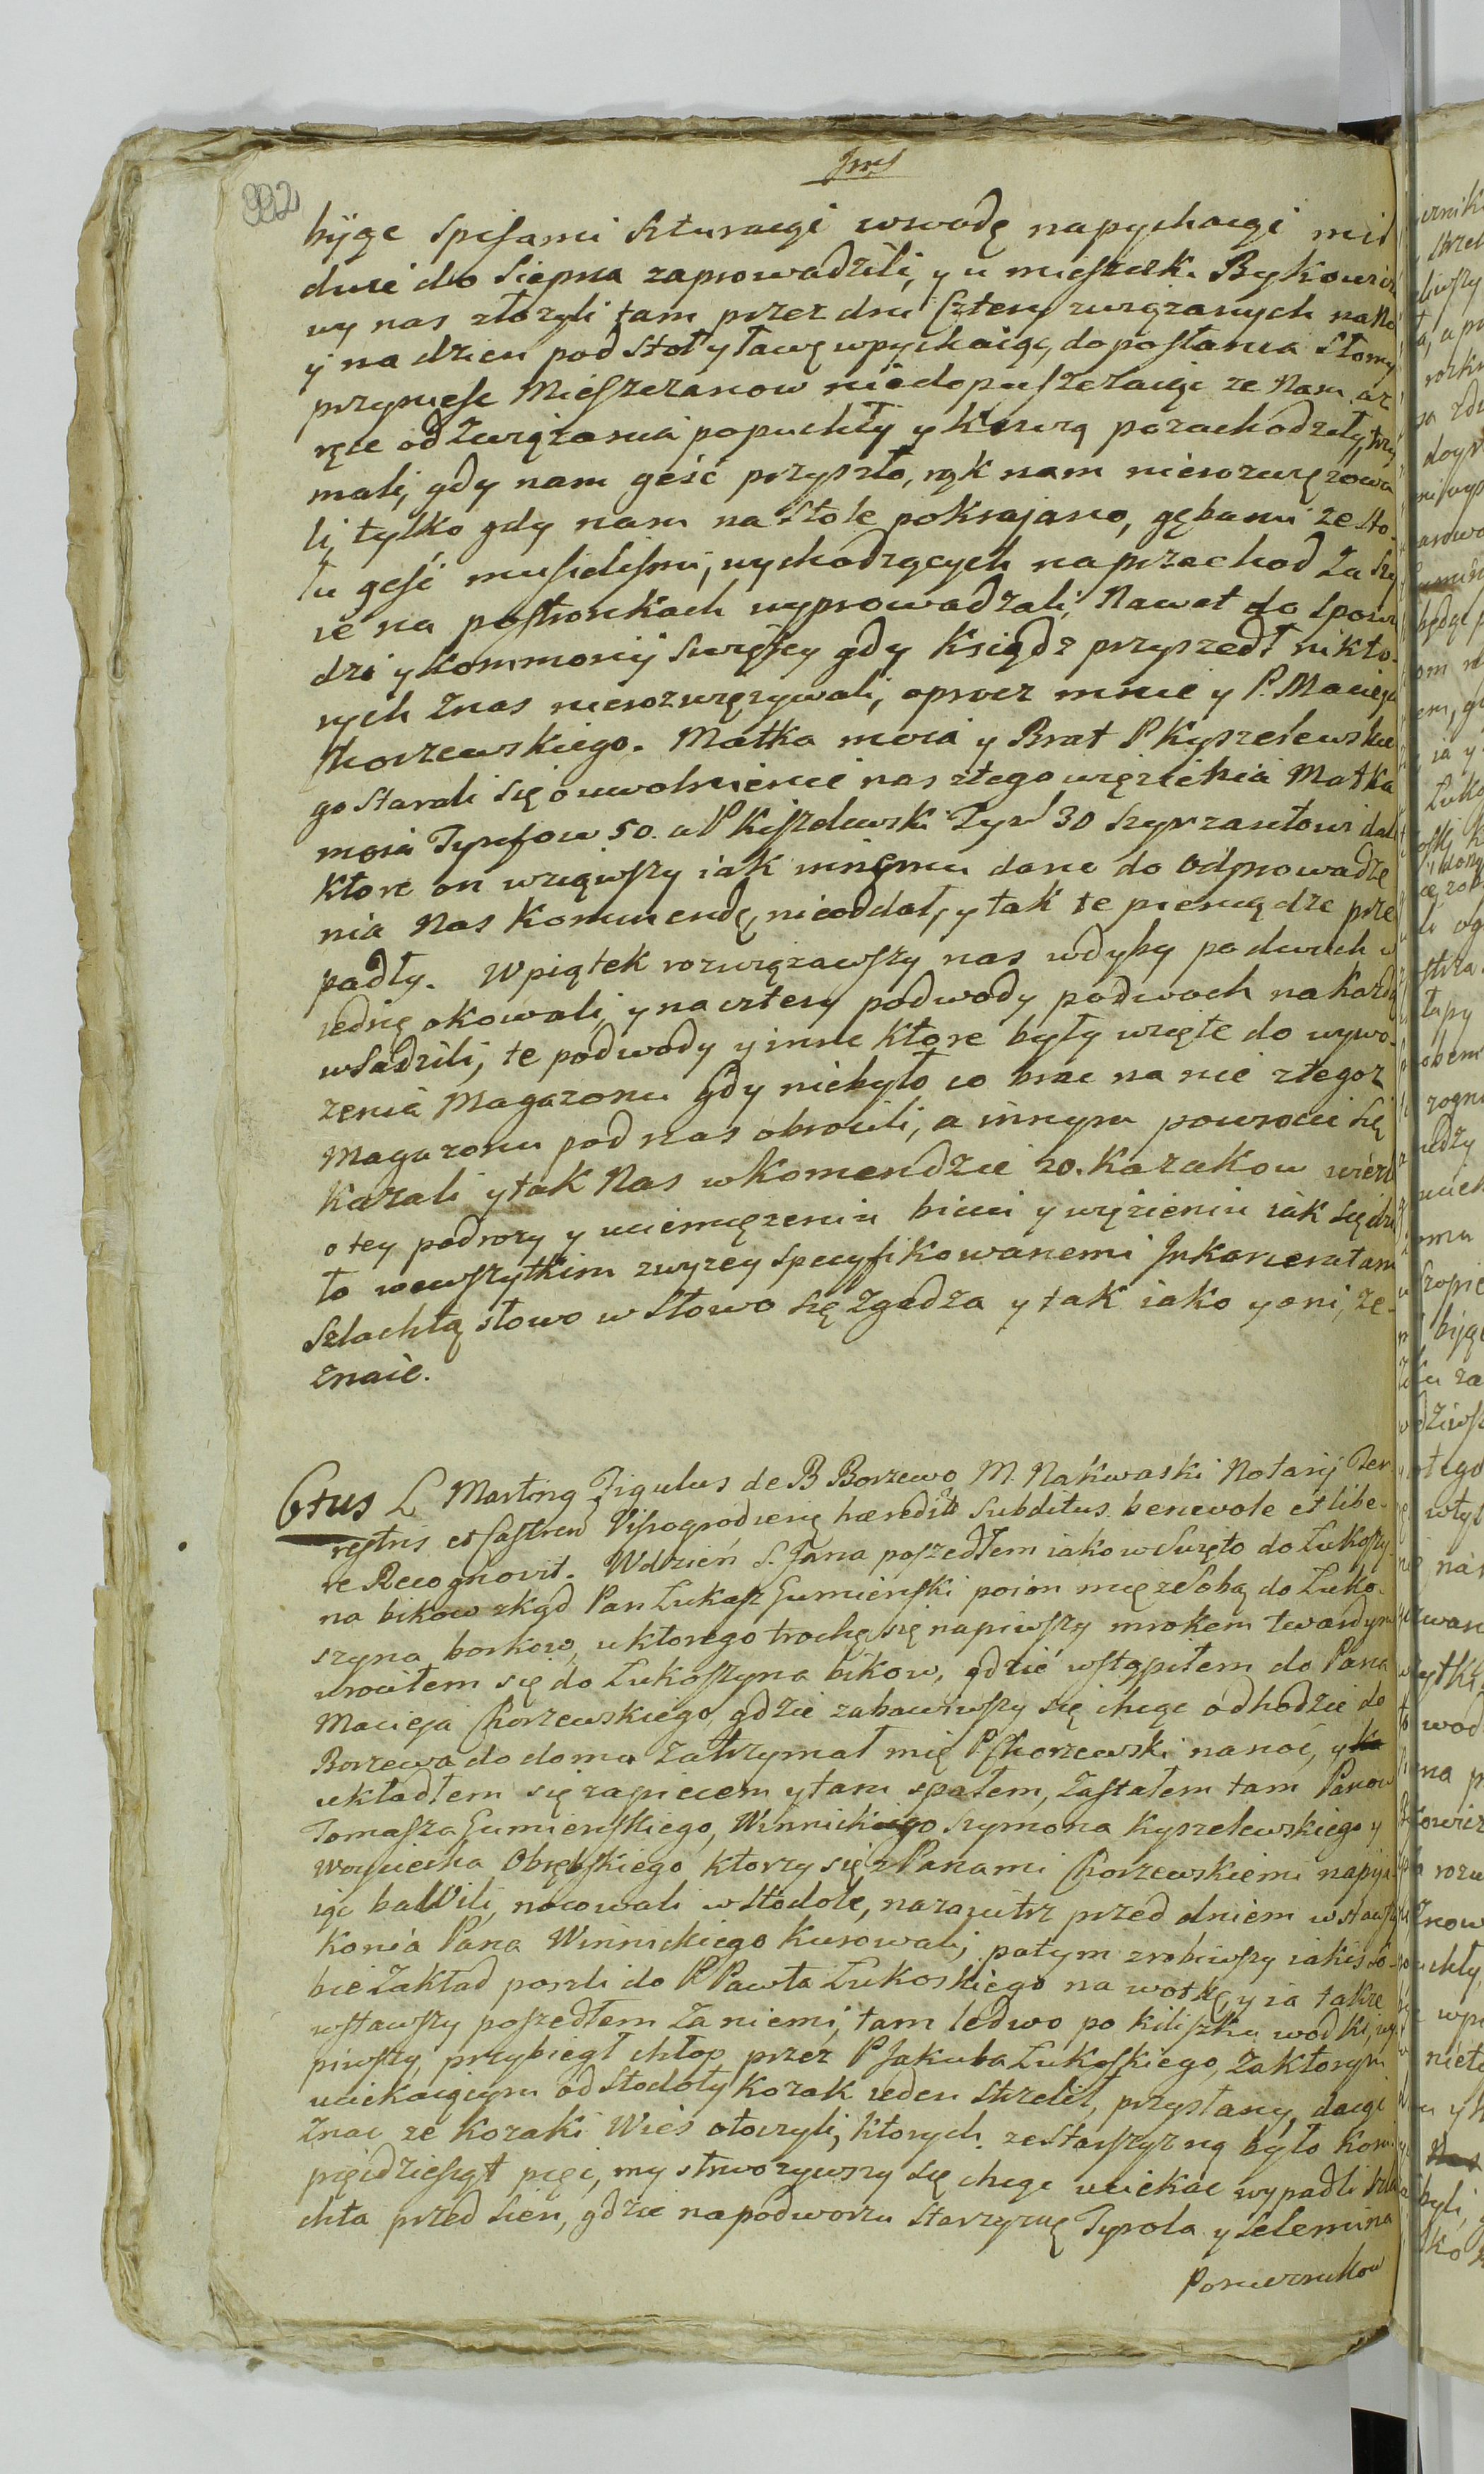 992
biiąc spisami szturaiąc w wodę napychaiąc mil
dwie do Siepca zaprowadzili, y u mieszczki Bykowiczo
wy nas złozyli tam przez dni cztery związanych na No
y na dzien pod stoł y ławę wpychaiąc, do posłania Słomy
przyniesc Mieszczanow niedopuszczaiąc ze Nam az
ręce od związania popuchły y Krwią pozachodzały, trzy
mali, gdy nam geść przyszło, rąk nam nierozwięzowa
li, tylko gdy nam na Stole pokrajano, gębami ze sto
łu geść musielismi, wychodzących na przechod za szy
ie na postronkach wyprowadzali, Nawet do spowi
dzi y kommonij Swiętey gdy Ksiądz przyszedł nikto-
rych z nas nierozwięzywali, oprocz mnie y P. Macieja
Chorzewskiego. Matka moia y Brat P Kyszelewskie
go starali się o uwolnienie nas z tego więzienia Matka
moia Tynfow 50. a P Kiszelewski Tyn 30 Szyrzantowi dali
ktore on wziąwszy iak innemu dane do odprowadze
nia Nas Kommendę, nieoddał, y tak te pieniądze prze
padły. W piątek rozwięzawszy nas w dyby po dwuch w
iednę okowali, y na cztery podwody po dwoch na kazdą
wsadzili, te podwody y inne ktore były wzięte do wywo-
zenia Magazonu Gdy niebyło co brac na nie z tegoz
Magazonu pod nas obrocili, a innym powrocic się
kazali y tak Nas w Komendzie 20. Kazakow wiezli
o tey podrozy y uciemięzeniu biciu y więzieniu iak się dzia
ło we wszytkim z wyzey specyfikowanemi Inkarceratami
Szlachtą słowo w słowo się zgadza y tak iako y oni, ze-
znaie.
Ctus L Marting Figulus de B Borzewo M. Nakwaski Notarij Ter
restris et Castren Vissogrodienę hæredis Subditus. benevole et libe-
re Recognovit. W dzień S. Jana poszedłem iako w Swięto do Lukoszy
na bikow zkąd Pan Łukasz Gumieński poion mię ze sobą do Łuko
szyna borkow, u ktorego trochę się napiwszy mrokem twardym
wrocilem się do Lukoszyna bikow, gdzie wstąpiłem do Pana
Macieja Chorzewskiego, gdzie zabawiwszy się chcąc odhodzic do
Borzewa do domu zatrzymał mię P. Chorzewski na noc, y
układłem się za piecem y tam spałem, zastałem tam Panow
Tomasza Gumieńskiego, Winnickiego Szymona Kyszelewskiego y
Woyciecha Obrębskiego ktorzy się z Panami Chorzewskiemi napija
iąc bawili, nocowali w stodole, nazaiutrz przed dniem wstawszy
Konia Pana Winnickiego Kurowali, potym zrobiwszy iakis so-
bie Zakład poszli do P Pawła Lukoskiego na wotkę, y ia takze
wstawszy poszedłem za niemi, tam ledwo po kiliszku wodki, wy
piwszy, przybiegł chłop przez P Jakuba Lukoskiego, za ktorym
uciekaiącym od stodoły Kozak ieden strzelił, przysłany, daiąc
znac ze Kozaki Wies otoczyli, ktorych. ze starszyzną było koni
pięcdziesiąt pięc, my strwozywszy się chcąc uciekac wypadli szla
chta przed sien, gdzie na podworzu Starzyznę Tyrola y Selemina
Porucznikow